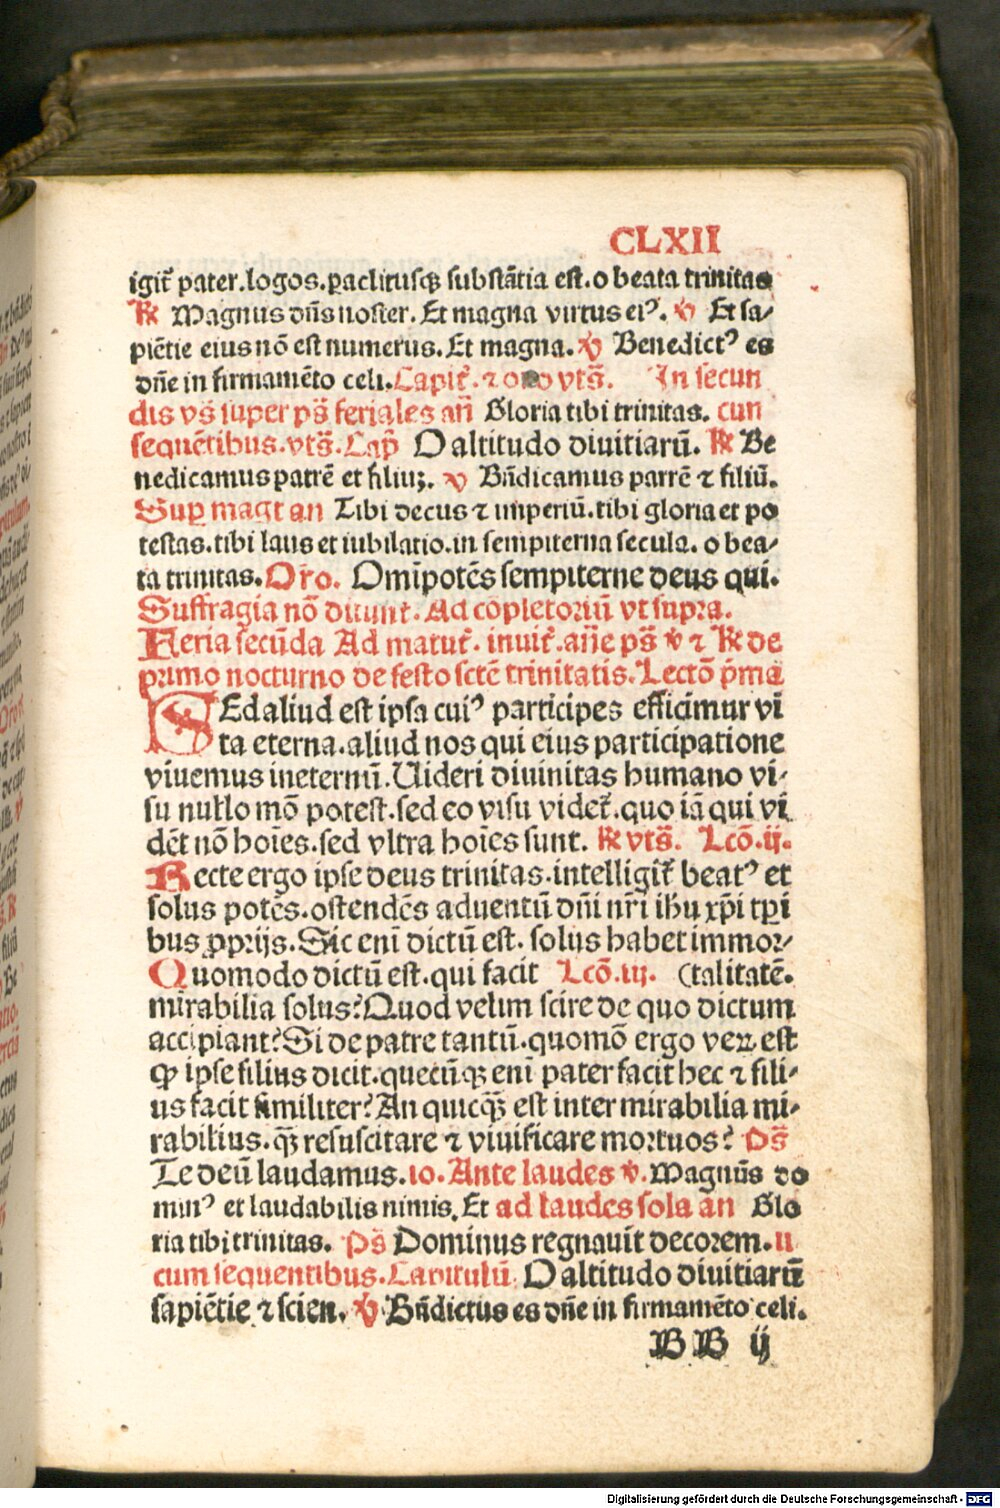 CLXII
igit᷑ pater.logos.ꝑaclitusqꝫ substãtia est.o beata trinitas
℟ Magnus dñs noster. Et magna virtus eiꝰ. ℣ Et sa⸗
piẽtie eius nõ est numerus. Et magna. ℣ Benedictꝰ es
dñe in firmamẽto celi. Capit᷑. ⁊ oro vts̃. In secun
dis vs̃ super ps̃ feriales añ Gloria tibi trinitas. cun
sequẽtibus.vts̃.Cap̃ O altitudo divitiarũ. ℟ Be
nedicamus patrẽ et filiuꝫ. ℣ Bñdicamus patrẽ ⁊ filiũ.
Suꝑ mag̃t an Tibi decus ⁊ imperiũ.tibi gloria et po
testas.tibi laus et iubilatio.in sempiterna secula. o bea⸗
ta trinitas. Oŕo. Omĩpotẽs sempiterne deus qui.
Suffragia nõ dicunt. Ad cõpletoriũ vt supra.
Feria secũda Ad matut᷑. inuit᷑.añe ps̃ ℣ ⁊ ℟ de
primo nocturno de festo sctẽ trinitatis. Lectõ p̃ma
SEd aliud est ipsa cuiꝰ participes efficimur vi
ta eterna.aliud nos qui eius participatione
viuemus ineternũ. Uideri diuinitas humano vi⸗
su nullo mõ potest.sed eo visu videt᷑.quo iã qui vi
dẽt nõ hoĩes.sed vltra hoĩes sunt. ℟ vts̃. Lcõ.ij.
Recte ergo ipse deus trinitas.intelligit᷑ beatꝰ et
solus potẽs.ostendẽs aduentũ dñi nr̃i ihu xp̃i tp̃i
bus ꝓprijs. Sic enĩ dictũ est. solus habet immor⸗
Quomodo dictũ est.qui facit Lcõ.iij. (talitatẽ.
mirabilia solus? Quod velim scire de quo dictum
accipiant? Si de patre tantũ.quomõ ergo veꝝ est
ꝙ ipse filius dicit.quecũqꝫ enĩ pater facit hec ⁊ fili⸗
us facit similiter? An quicqꝫ̃ est inter mirabilia mi⸗
rabilius.qꝫ̃ resuscitare ⁊ viuificare mortuos? Ps̃
Te deũ laudamus. io. Ante laudes ℣. Magnũs do
minꝰ et laudabilis nimis. Et ad laudes sola an Glo
ria tibi trinitas. Ps̃ Dominus regnauit decorem. u
cum sequentibus. Capitulũ. O altitudo diuitiarũ
sapiẽtie ⁊ scien. ℣ Bñdictus es dñe in firmamẽto celi.
BB ij
Digitalisierung gefördert durch die Deutsche Forschungsgemeinschaft - DFG